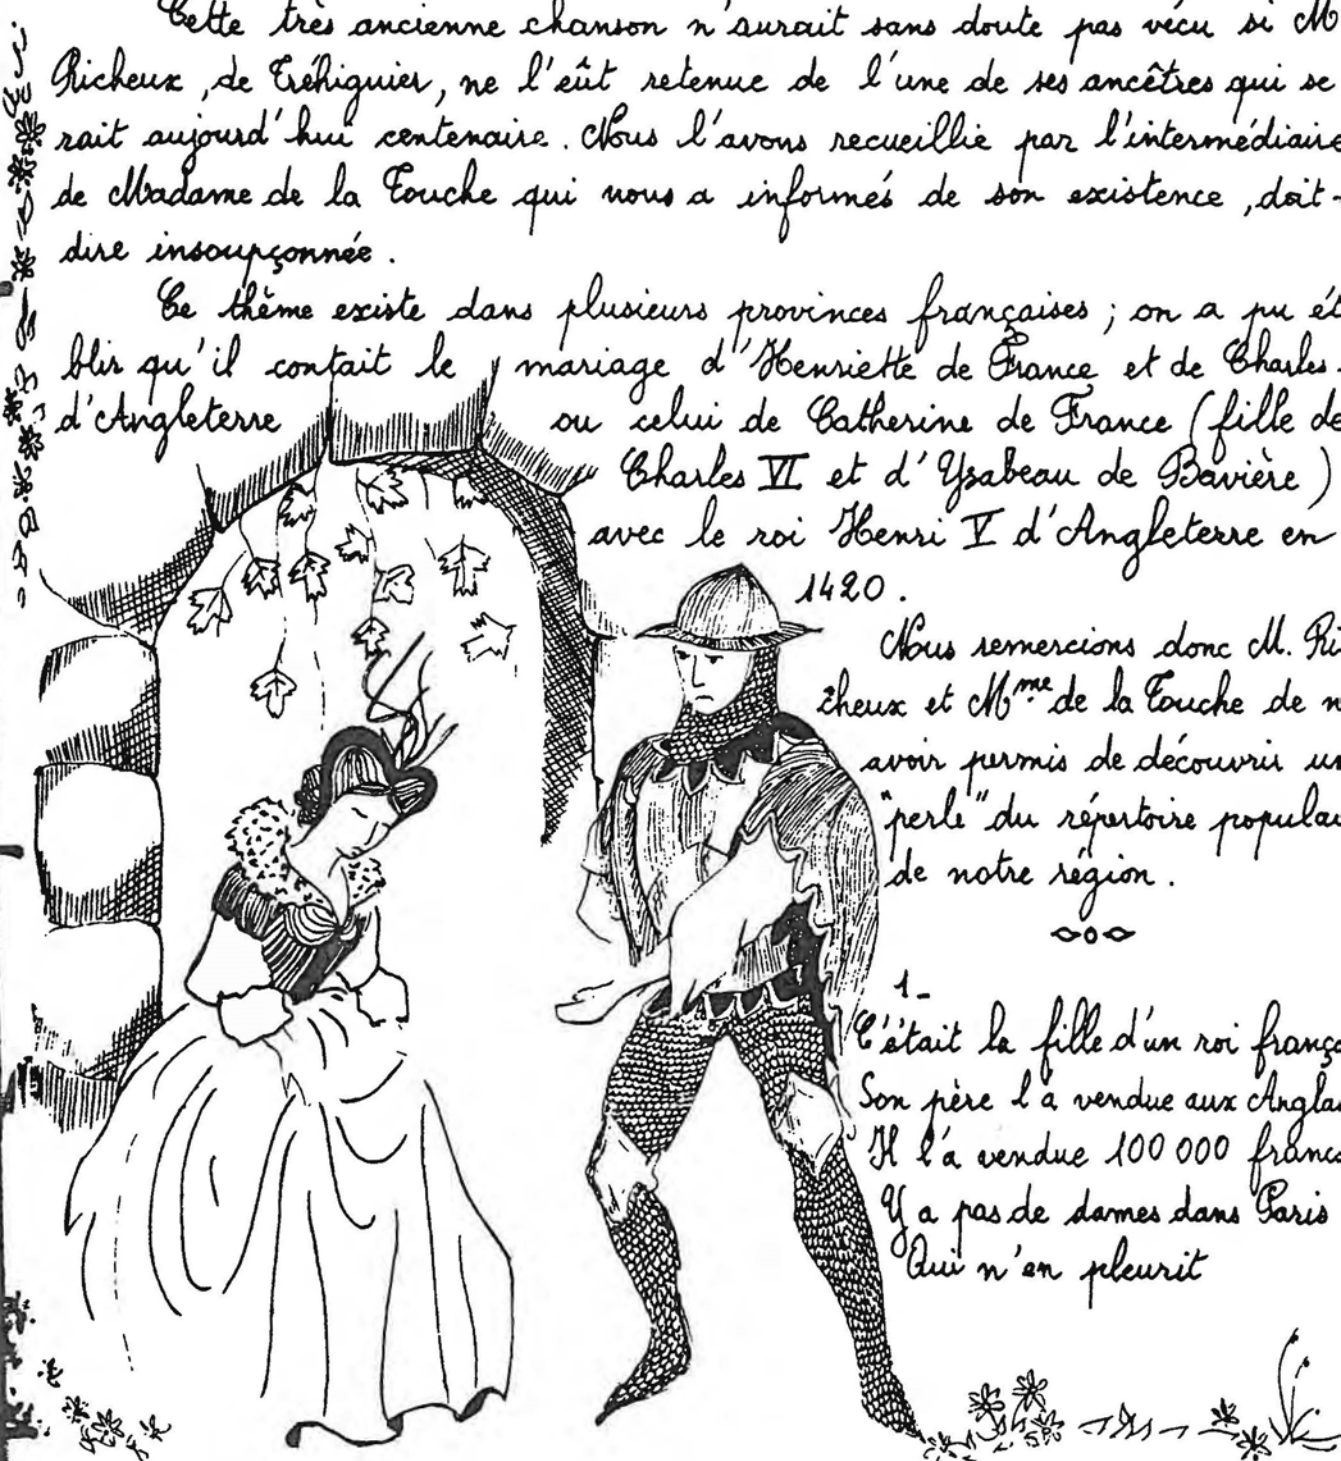 Cette très ancienne chanson n'aurait sans doute pas vécu si M
Richeux, de Tréhiguier, ne l'eût retenue de l'une de ses ancêtres qui se
rait aujourd'hui centenaire. Nous l'avons recueillie par l'intermédiaire
de Madame de la Touche qui nous a informés de son existence, doit-
dire insoupçonnée.
Ce thème existe dans plusieurs provinces françaises ; on a pu ét
blir qu'il contait le mariage d'Henriette de France et de Charles
d'Angleterre ou celui de Catherine de France (fille de
Charles VI et d'Ysabeau de Bavière)
avec le roi Henri V d'Angleterre en
1420.
Nous remercions donc M. Ri
cheux et Mme de la Touche de n
avoir permis de découvrir un
"perle" du répertoire populai
de notre région.
1-
C'était la fille d'un roi franço
Son père l'a vendue aux Angla
Il l'a vendue 100 000 francs
Y a pas de dames dans Paris
Qui n'en pleurit